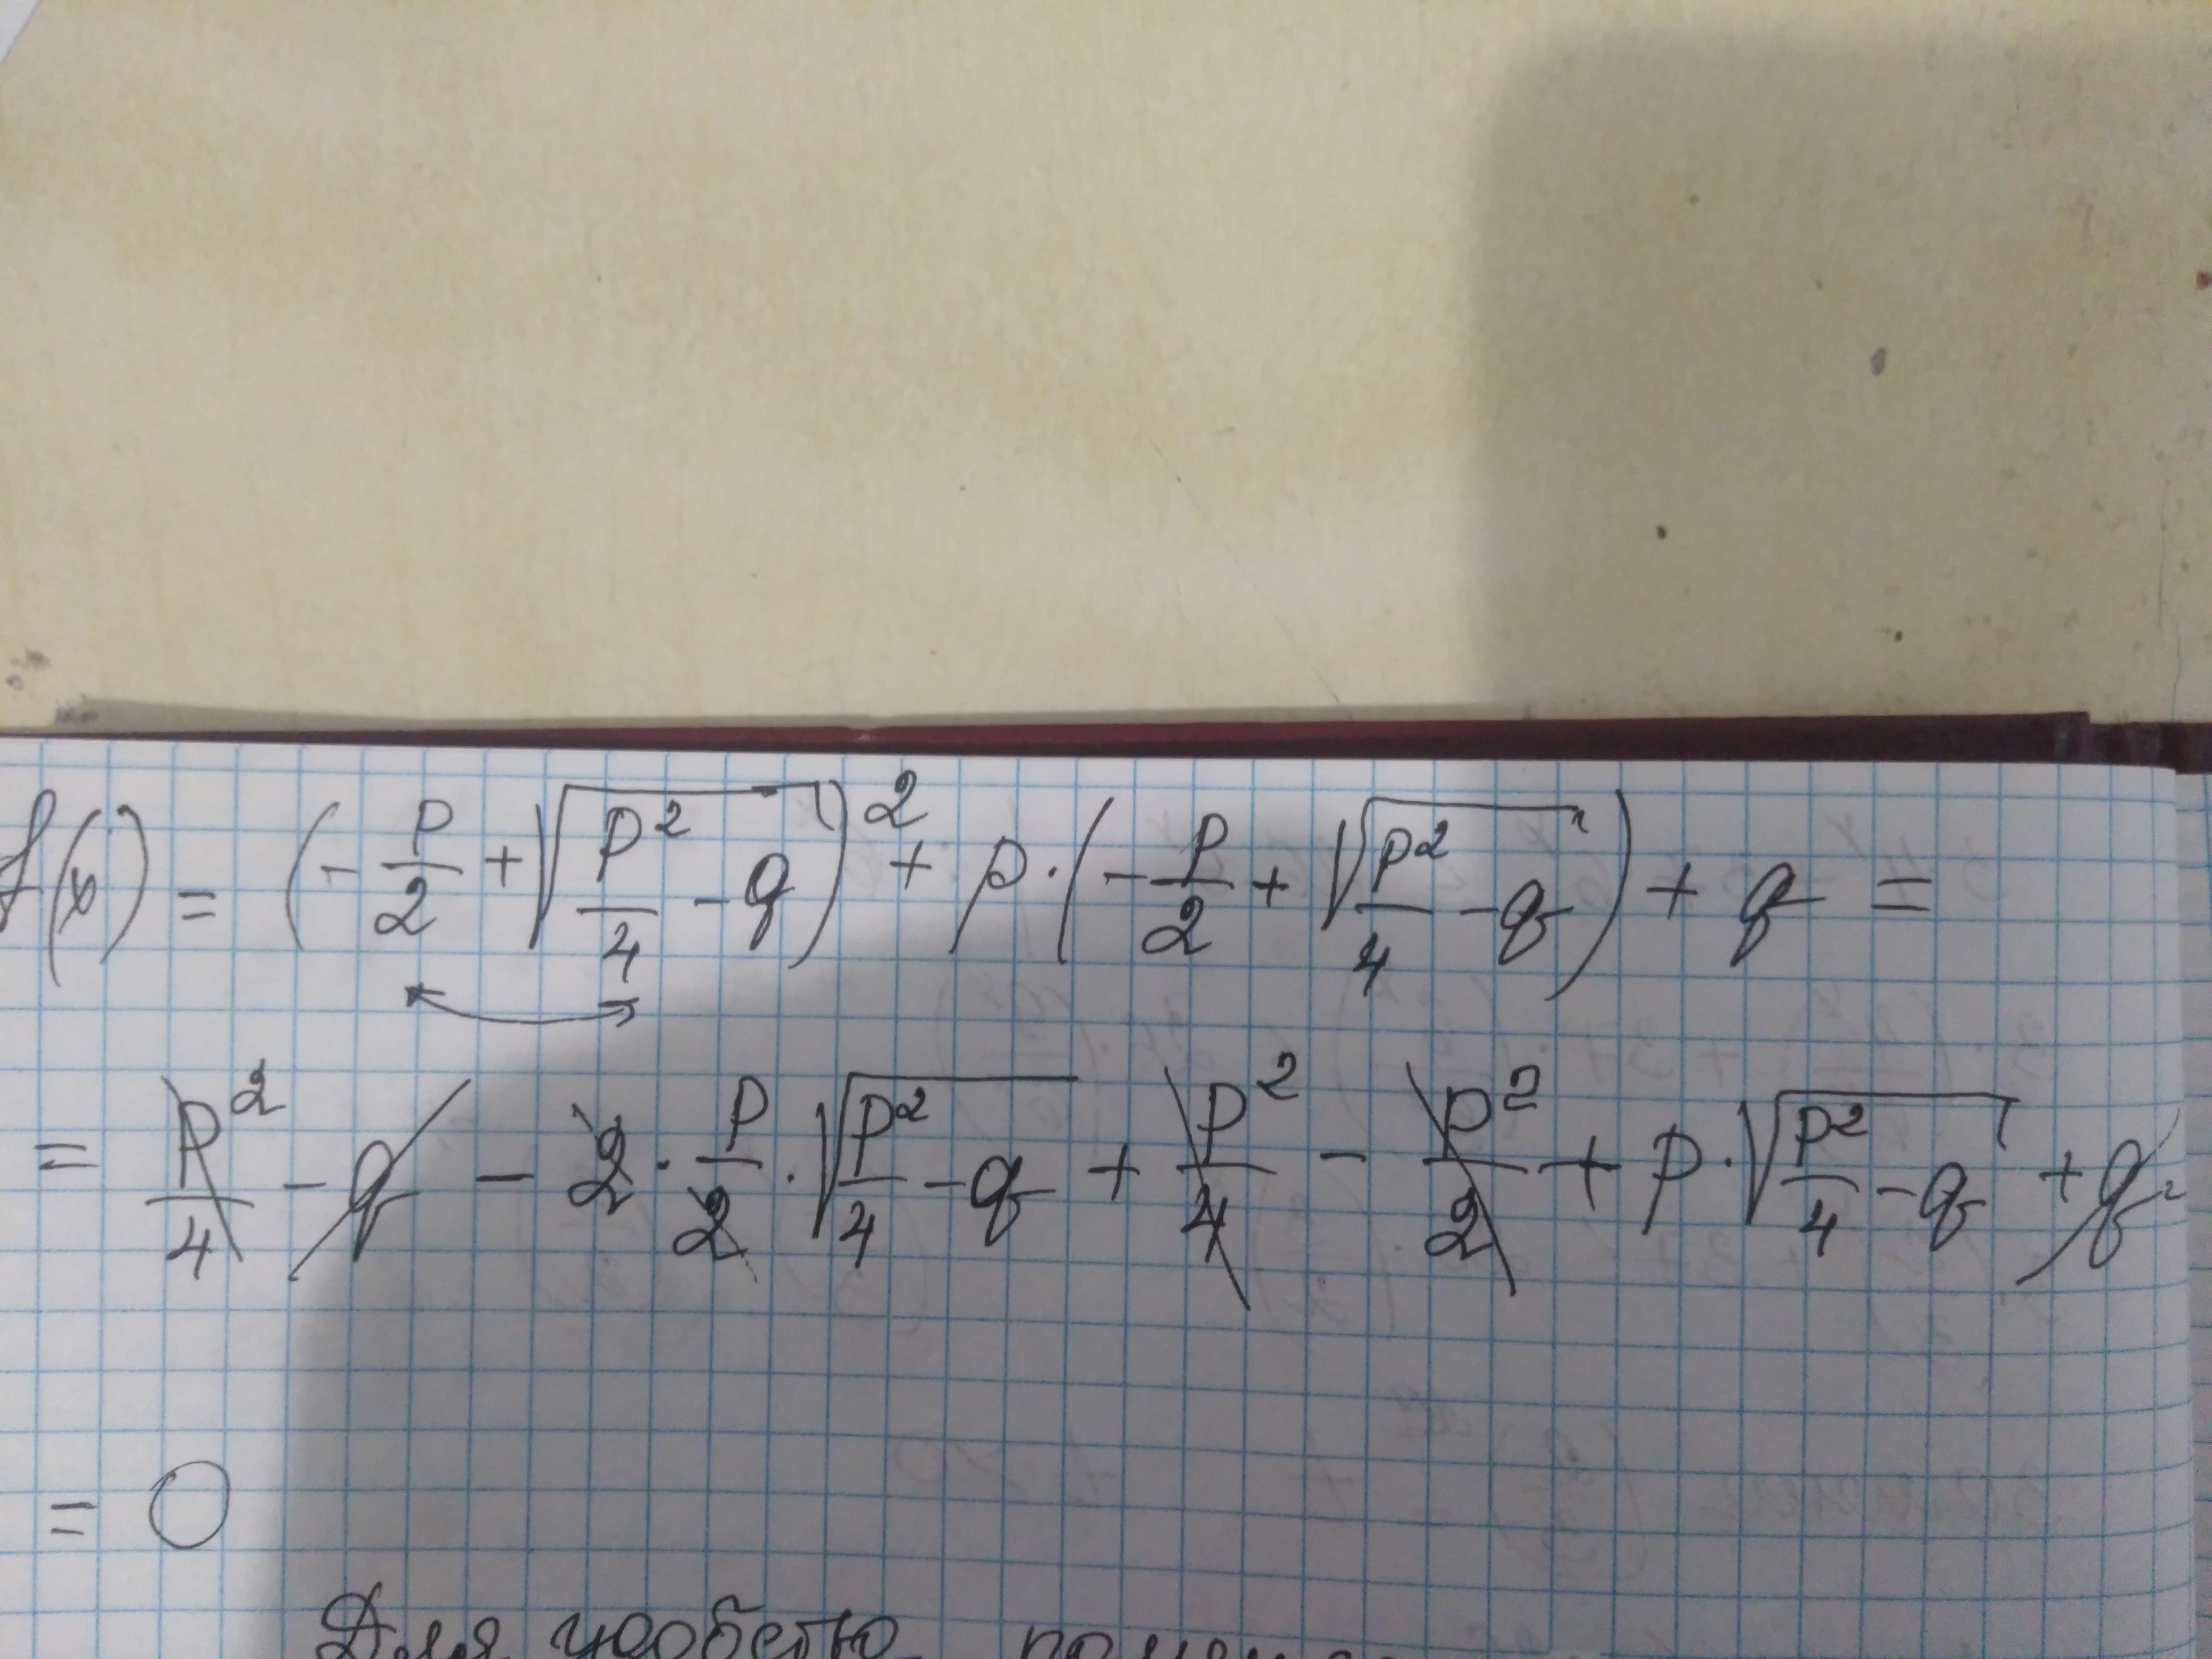 f(x) = (-p/2 + √(p²/4 - q))² + p·(-p/2 + √(p²/4 - q)) + q =
= p²/4 - q - 2·p/2·√(p²/4 - q) + p²/4 - p²/2 + p·√(p²/4 - q) + q =
= 0
Для удобства